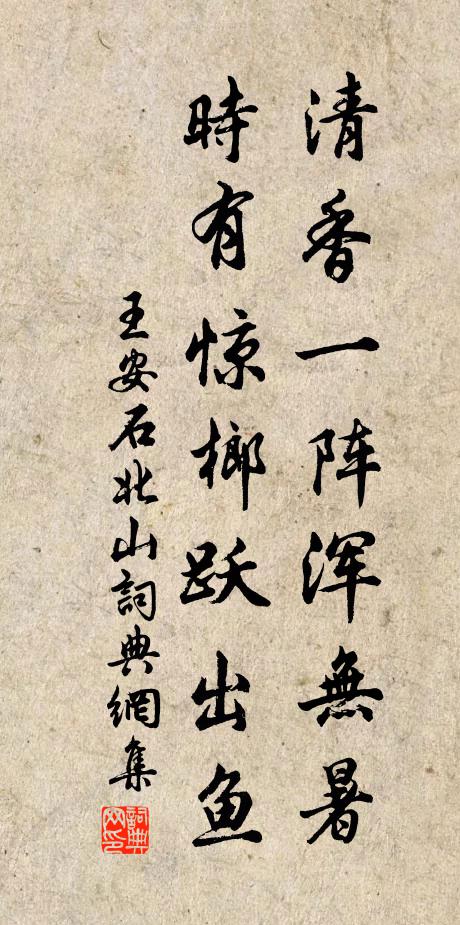 清香一阵浑無暑
時有惊榔跃出鱼
王安石北山詞典網集
詞典网印